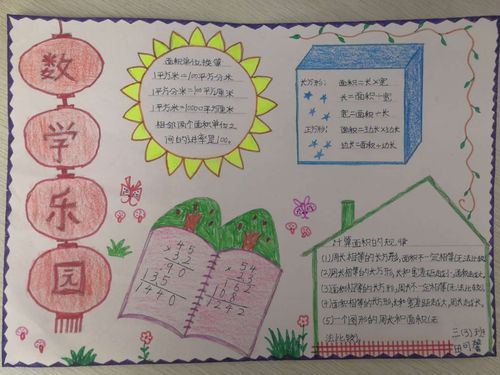 数学乐园
面积单位换算
1平方米=100平方分米
1平方分米=100平方厘米
1平方米=10000平方厘米
相邻两个面积单位之
间的进率是100。
长方形: 面积=长×宽
长=面积÷宽
宽=面积÷长
正方形: 面积=边长×边长
边长=面积÷边长
45
×32
90
135
1440
54
×23
162
108
1242
计算面积的规律
(1)周长相等的长方形,面积不一定相等(无法比较)
(2)周长相等的长方形,长和宽差距越小,面积越大
(3)面积相等的长方形,周长不一定相等(无法比较)
(4)面积相等的长方形,长和宽差距越大,周长越长。
(5)一个图形的周长和面积(无
法比较)。
三(3)班
田可馨